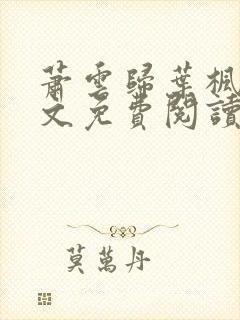 蕭雲歸葉楓
文免費閱讀
莫萬丹